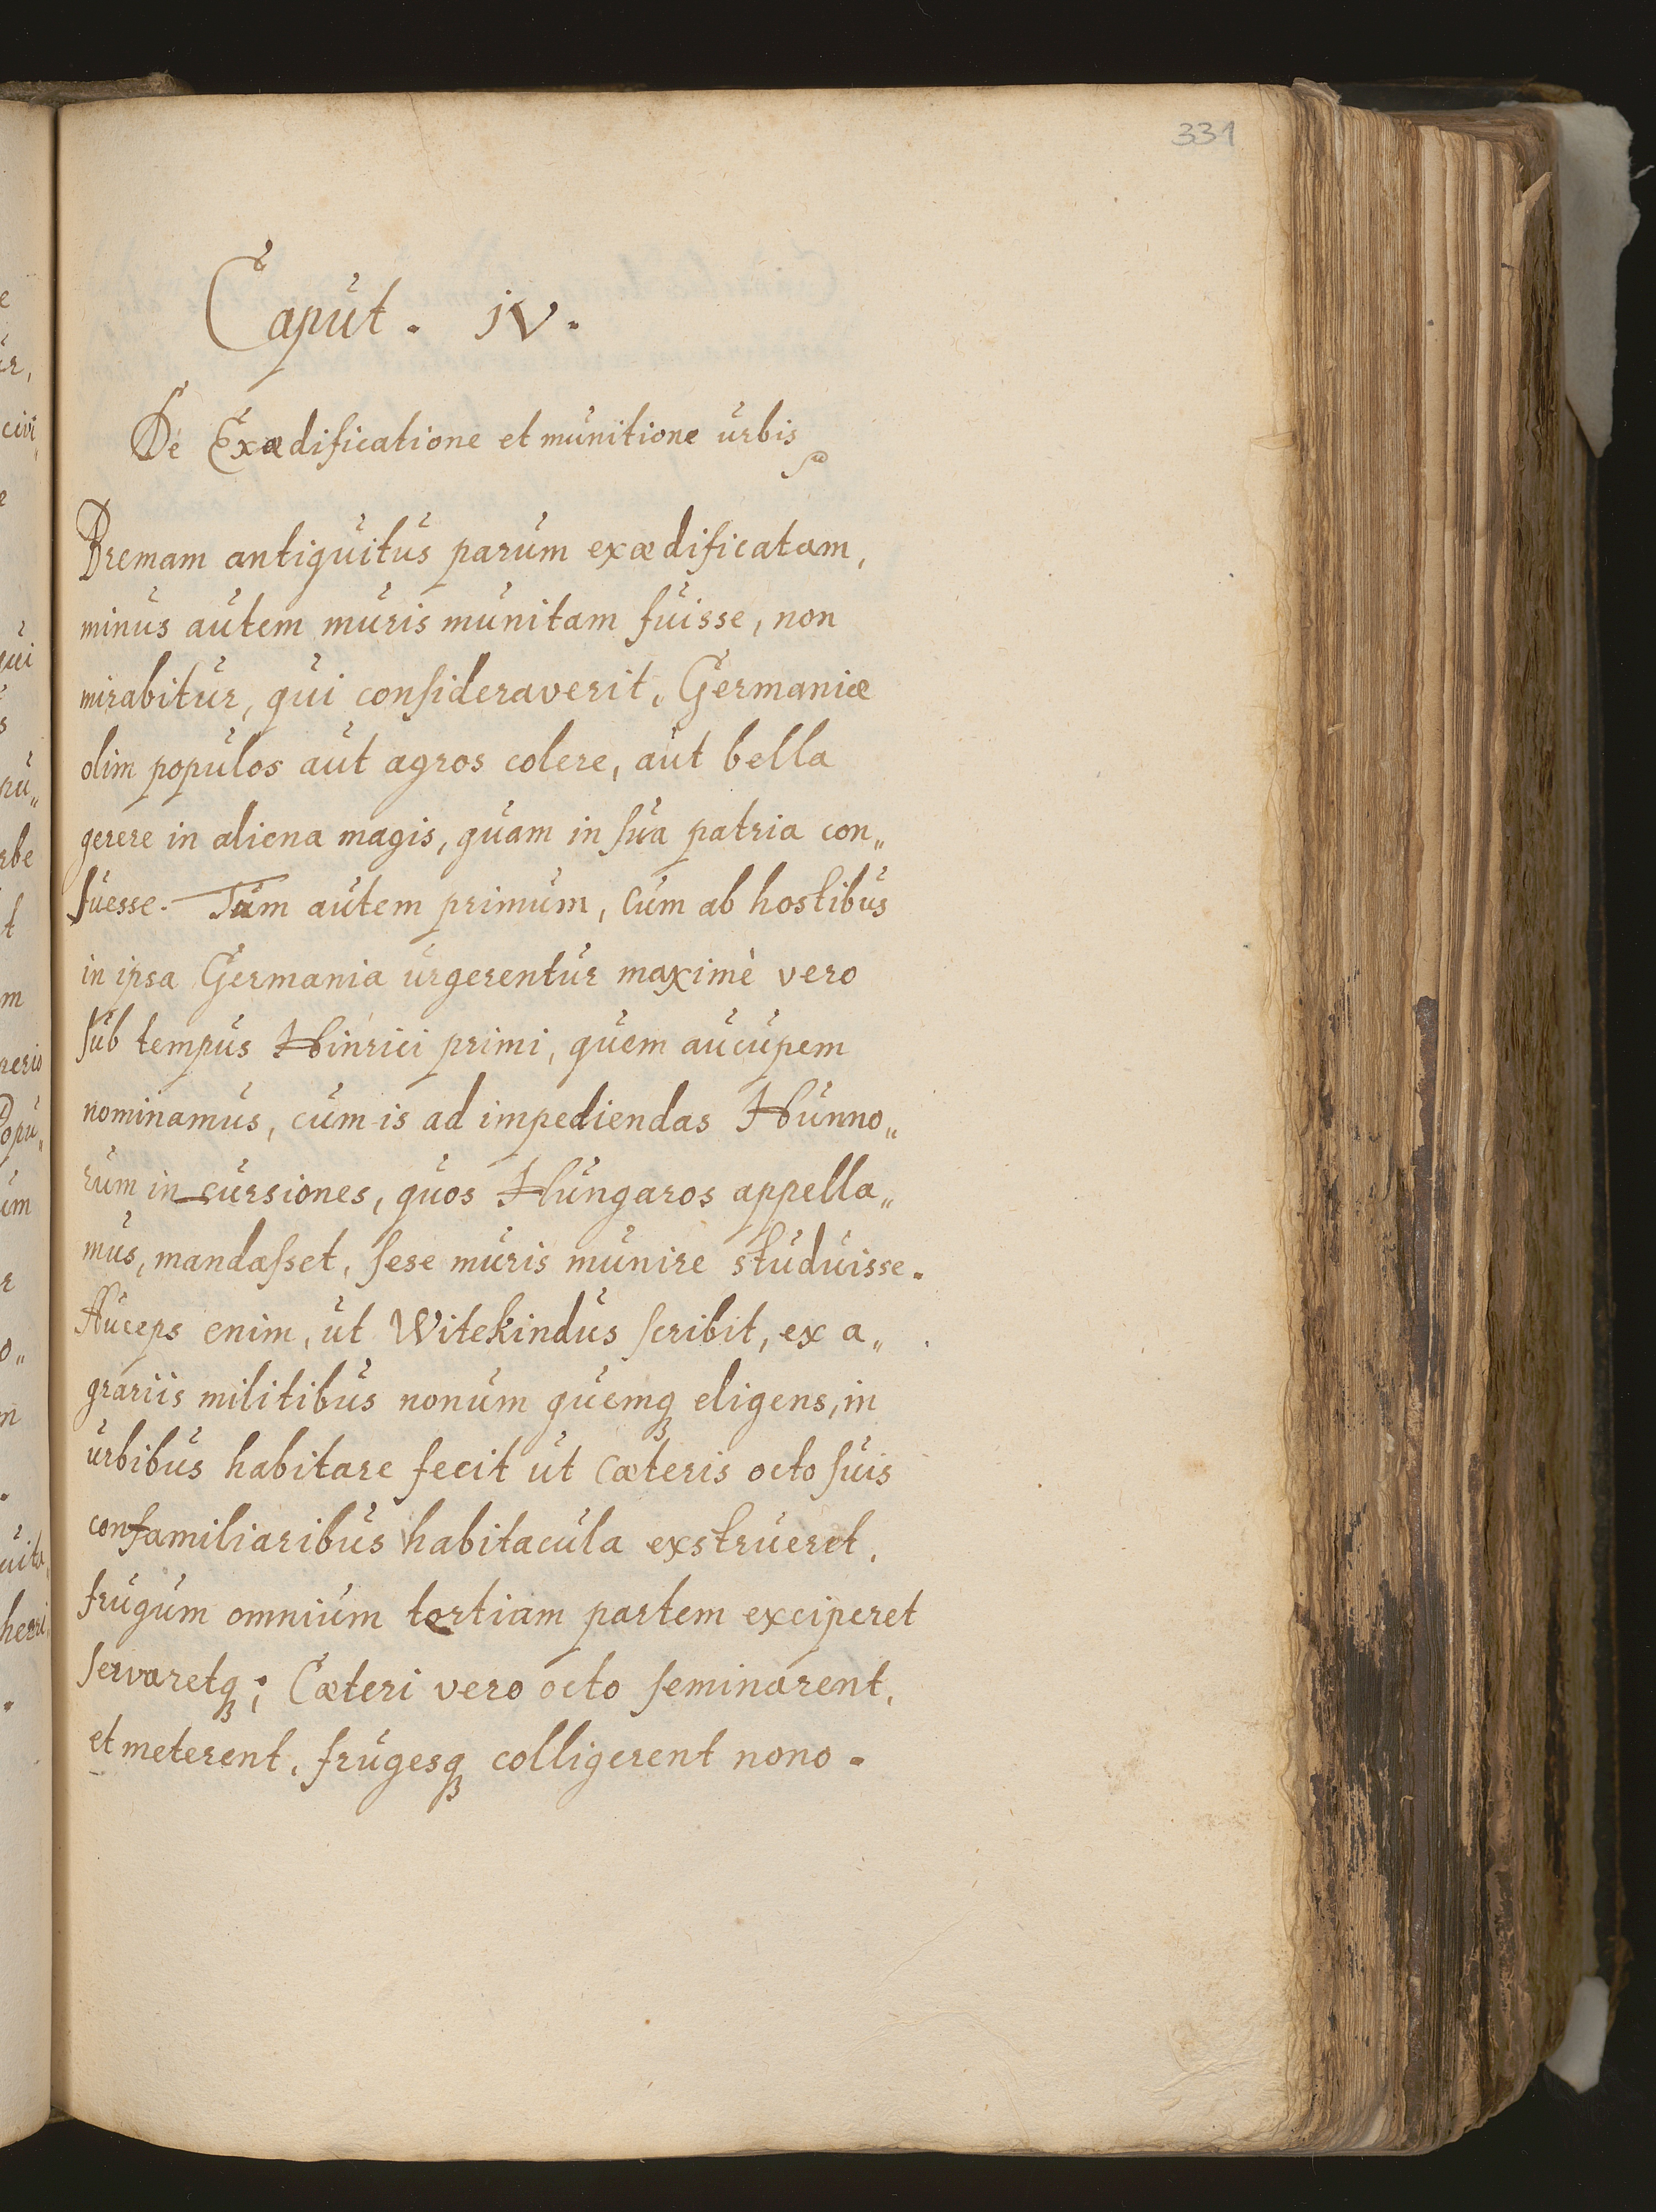 331
Caput. IV.
De Exædificatione et munitione urbis
Bremam antiquitus parum exædificatam,
minus autem muris munitam fuisse, non
mirabitur, qui consideraverit, Germaniæ
olim populos aut agros colere, aut bella
gerere in aliena magis, quam in sua patria con„
suesse. Tum autem primum, cum ab hostibus
in ipsa Germania urgerentur maximè vero
sub tempus Hinrici primi, quem aucupem
nominamus, cum is ad impediendas Hunno„
rum in cursiones, quos Hungaros appella„
mus, mandasset, sese muris munire studuisse.
Auceps enim, ut Witekindus scribit, ex a„
grariis militibus nonum quemq₃ eligens, in
urbibus habitare fecit ut cæteris octo suis
confamiliaribus habitacula exstrueret,
frugum omnium tertiam partem exciperet
servaretq₃; Cæteri vero octo seminarent,
et meterent, frugesq₃ colligerent nono.